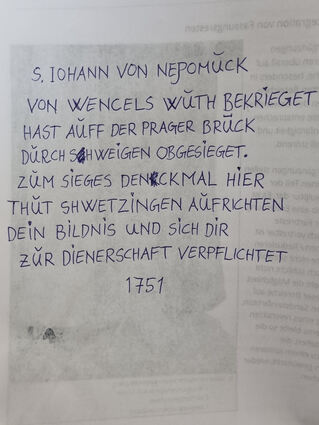 S, IOHANN VON NEPOMŬCK
VON WENCELS WŬTH BEKRIEGET
HAST AUFF DER PRAGER BRŬCK
DŬRCH SCHWEIGEN OBGESIEGET.
ZŬM SIEGES DENCKMAL HIER
THŬT SHWETZINGEN AUFRICHTEN
DEIN BILDNIS UND SICH DIR
ZŬR DIENERSCHAFT VERPFLICHTET
1751